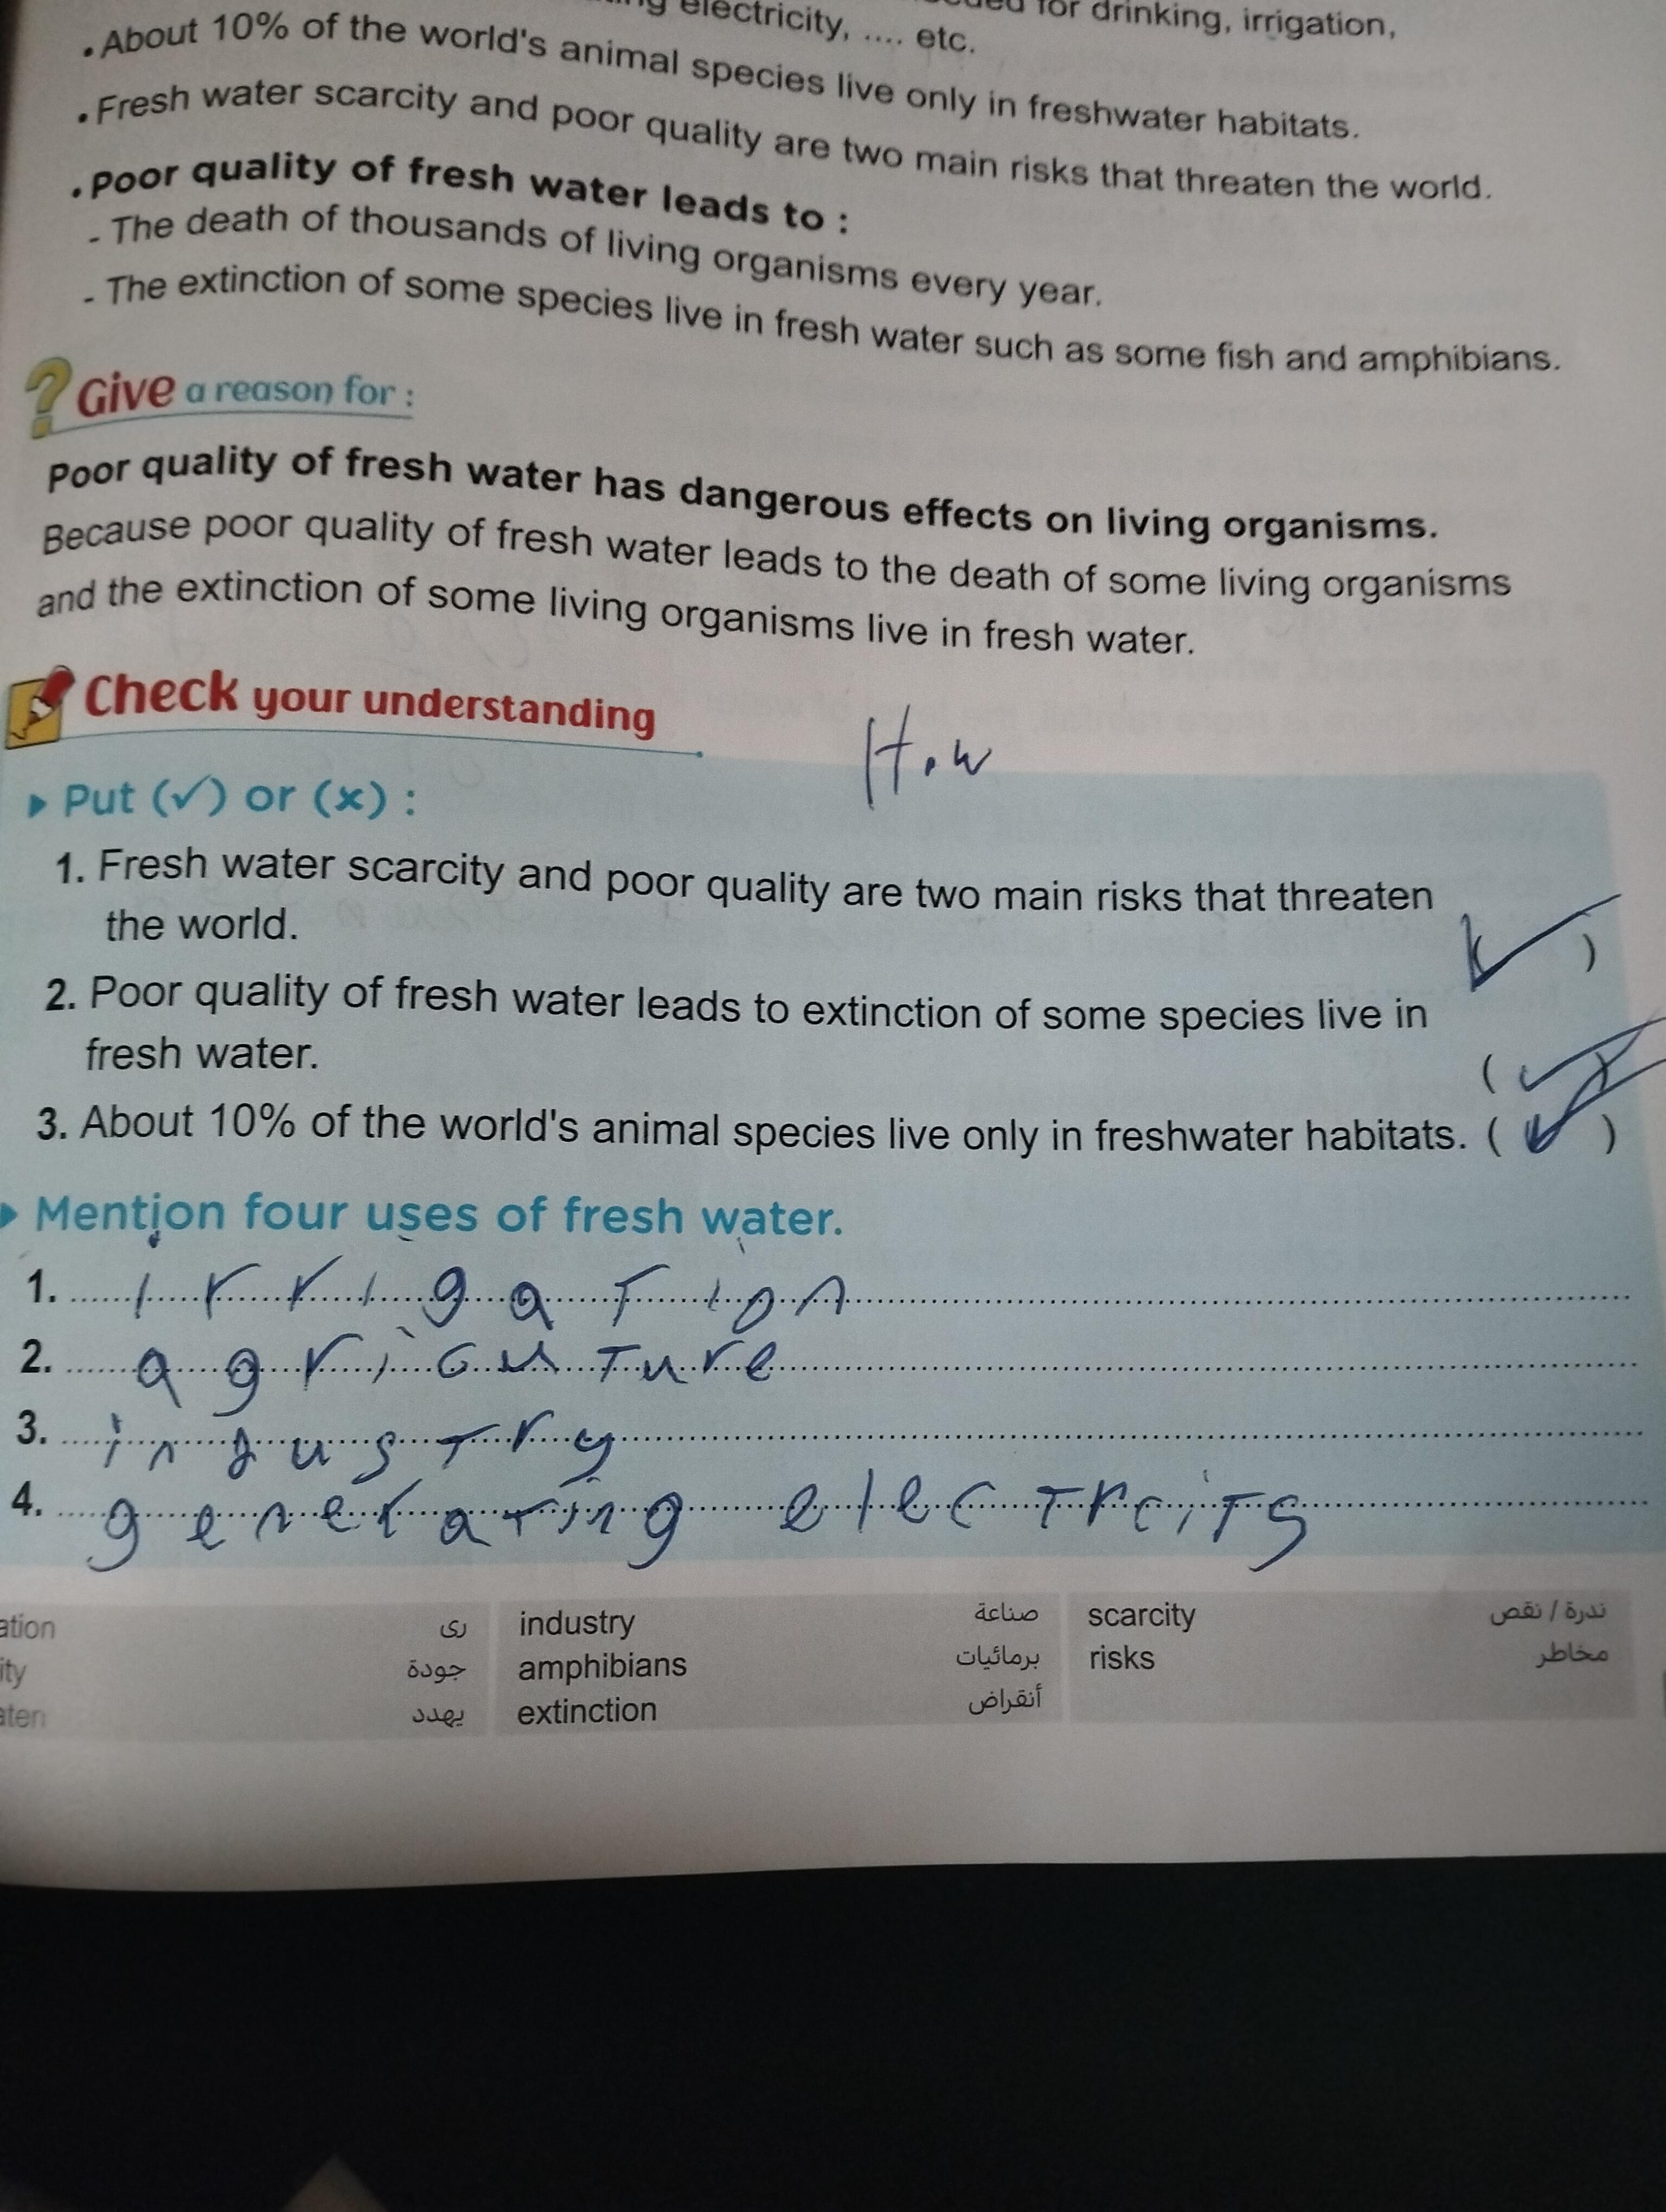 for drinking, irrigation,
electricity, .... etc.
• About 10% of the world's animal species live only in freshwater habitats.
• Fresh water scarcity and poor quality are two main risks that threaten the world.
• Poor quality of fresh water leads to :
- The death of thousands of living organisms every year.
- The extinction of some species live in fresh water such as some fish and amphibians.
? Give a reason for :
Poor quality of fresh water has dangerous effects on living organisms.
Because poor quality of fresh water leads to the death of some living organisms
and the extinction of some living organisms live in fresh water.
Check your understanding
H.w
Put (✓) or (x) :
1. Fresh water scarcity and poor quality are two main risks that threaten
the world. (✓)
2. Poor quality of fresh water leads to extinction of some species live in
fresh water. (✓)
3. About 10% of the world's animal species live only in freshwater habitats. (✓)
Mention four uses of fresh water.
1. irrigation
2. agricuture
3. industry
4. generating electrcity
ation رى industry صناعة scarcity ندرة / نقص
ity جودة amphibians برمائيات risks مخاطر
aten يهدد extinction أنقراض